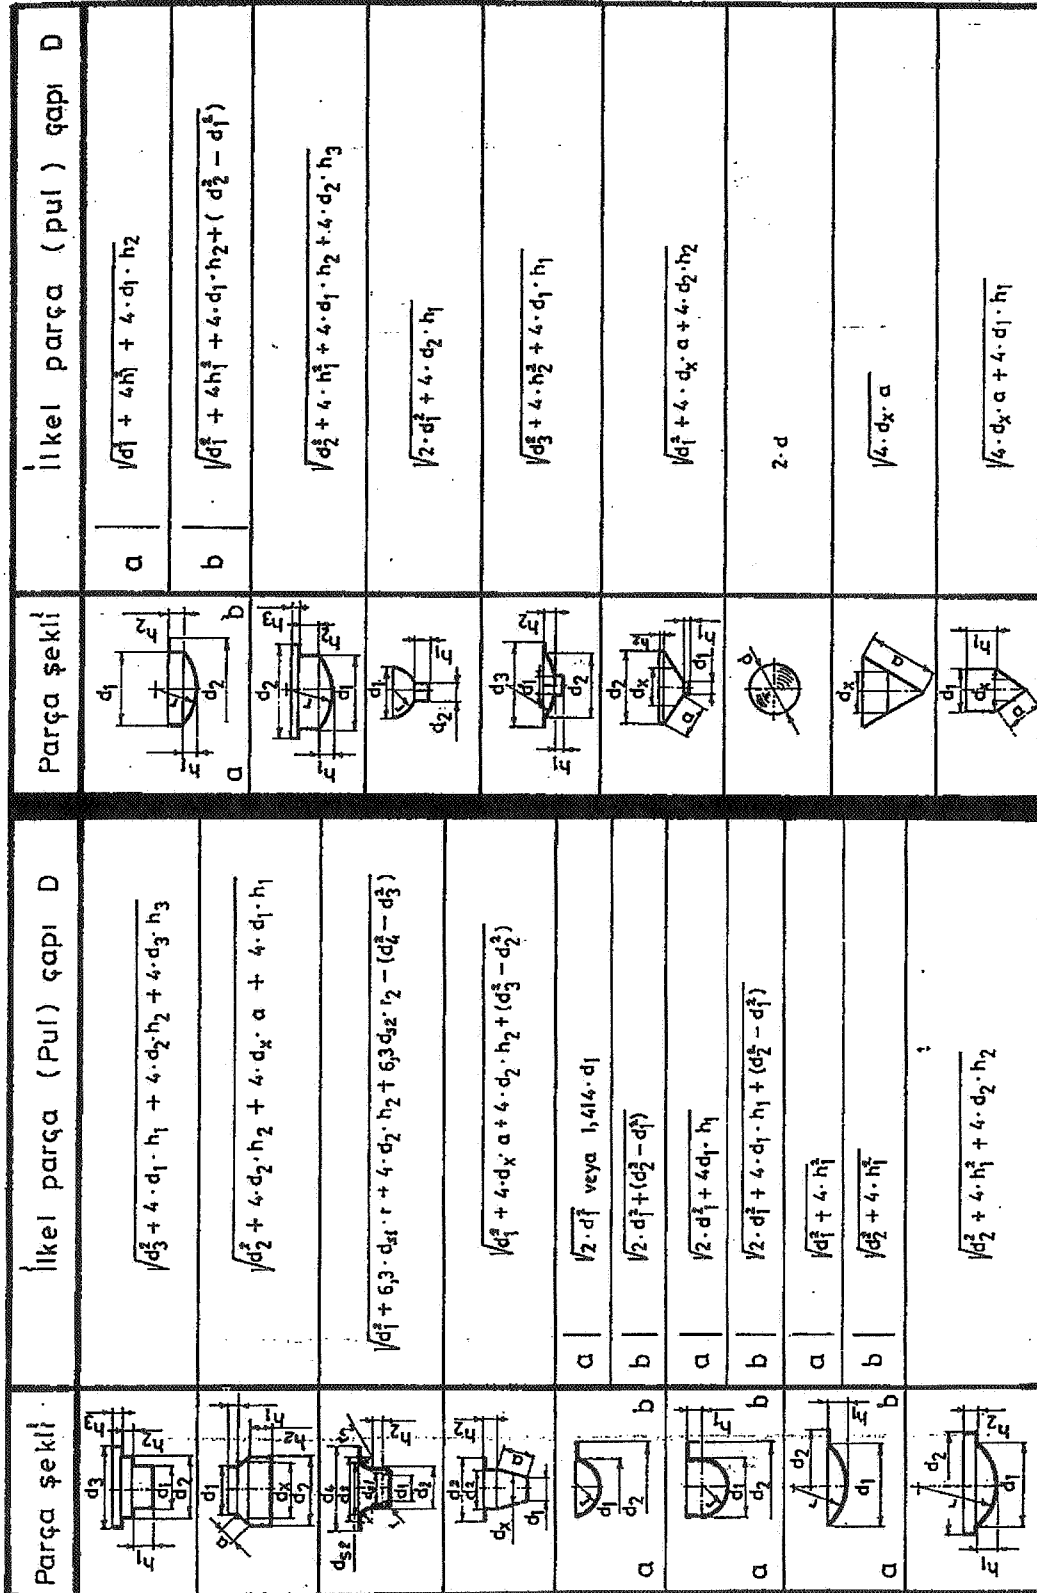 Parça şekli
İlkel parça (Pul) çapı D
d3
h3
h2
d1
d2
h1
√d3² + 4·d1·h1 + 4·d2·h2 + 4·d3·h3
d1
h1
a
h2
dx
d2
√d2² + 4·d2·h2 + 4·dx·a + 4·d1·h1
d4
ds2
h2
d1
d2
√d1² + 6,3·ds1·r + 4·d2·h2 + 6,3 ds2·r2 - (d4² - d3²)
h2
dx
a
d1
√d1² + 4·dx·a + 4·d2·h2 + (d3² - d2²)
r
d1
d2
a
b
a
√2·d1² veya 1,414·d1
b
√2·d1² + (d2² - d1²)
h1
r
d1
d2
a
b
a
√2·d1² + 4d1·h1
b
√2·d1² + 4·d1·h1 + (d2² - d1²)
d2
r
h1
d1
a
b
a
√d1² + 4·h1²
b
√d2² + 4·h1²
d2
r
h2
h1
d1
√d2² + 4·h1² + 4·d2·h2
Parça şekli
İlkel parça (pul) çapı D
d1
h2
r
h1
d2
a
b
a
√d1² + 4h1² + 4·d1·h2
b
√d1² + 4h1² + 4·d1·h2 + (d2² - d1²)
d2
h3
h2
r
h1
d1
√d2² + 4·h1² + 4·d1·h2 + 4·d2·h3
d1
h1
d2
√2·d1² + 4·d2·h1
d3
h2
d1
h1
d2
√d3² + 4·h2² + 4·d1·h1
d2
dx
h2
a
d1
h1
√d1² + 4·dx·a + 4·d2·h2
d
2·d
dx
a
√4·dx·a
d1
h1
dx
a
√4·dx·a + 4·d1·h1